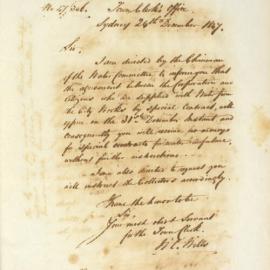 No 47/346. Town Clerk's Office
Sydney 24th December 1847.
Sir,
I am directed by the Chairman
of the Water Committee, to inform you that
the agreement between the Corporation and
Citizens who are supplied with Water from
the City Works by Special Contract, will
expire on the 31st December Instant and
consequently you will receive no moneys
for special contracts for water
without further instructions.
I am also directed to request you
will instruct the Collectors accordingly.
I have the honor to be
Sir
Your most obedt Servant
for the Town Clerk